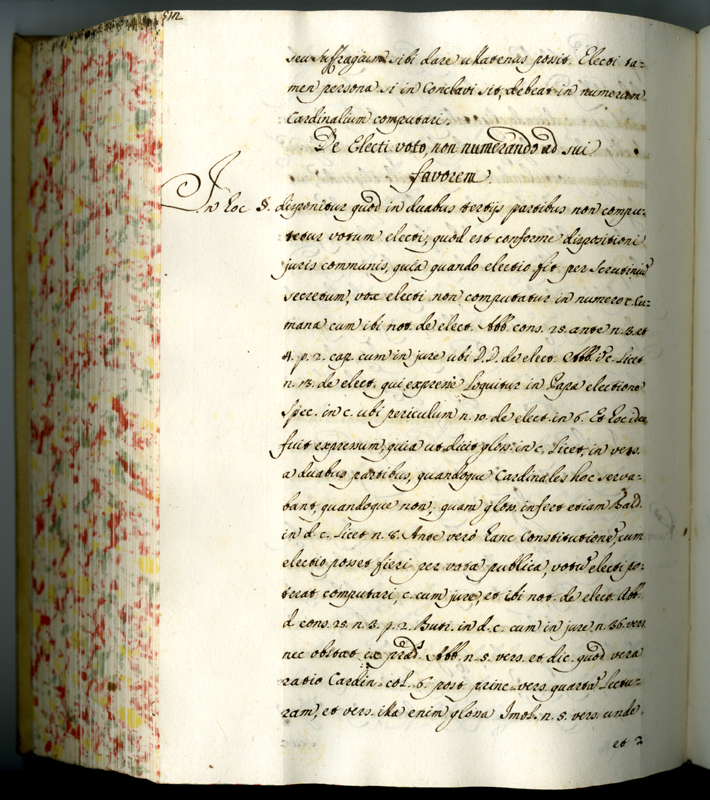 seu suffragium sibi dare ullatenus possit. Electi ta-
men persona si in Conclavi sit, debeat in numerum
Cardinalium computari.
De Electi voto non numerando ad sui
favorem
In hoc §. disponitur quod in duabus tertijs partibus non compu-
tetur votum electi, quod est conforme dispositioni
juris communis, quia quando electio fit per Scrutiniũ
secretum, vox electi non computatur in numero c. Cu-
mana cum ibi not. de elect. Abb. cons. 25. ante n. 3. et
4. p. 2. cap. cum in jure ubi D.D. de elect. Abb. c. licet
n. 13. de elect. qui expresse loquitur in Papa electione
Spec. in c. ubi periculum n. 10. de elect. in 6. Et hoc ideo
fuit expressum, quia ut dicit glos. in c. licet, in vers.
a duabus partibus, quandoque Cardinales hoc serva-
bant, quandoque non, quam glos. infert etiam Bald.
in d. c. licet n. 8. Ante verò hanc Constitutionẽ, cum
electio posset fieri per vota publica, votũ electi po-
terat computari, c. cum jure, et ibi not. de elect. Abb.
d. cons. 25. n. 3. p. 2. Butr. in d. c. cum in jure n. 36. vers.
nec obstat Abb. n. 5. vers. et dic. quod vera
ratio Cardin. col. 6. post princ. vers. quarta lectu-
ram, et vers. ita enim glosa Imol. n. 5. vers. unde
et